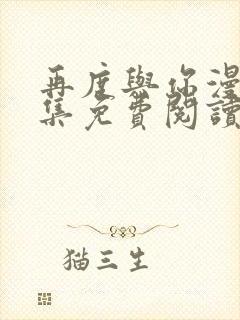 再度與你漫
集免費閱讀
猫三生